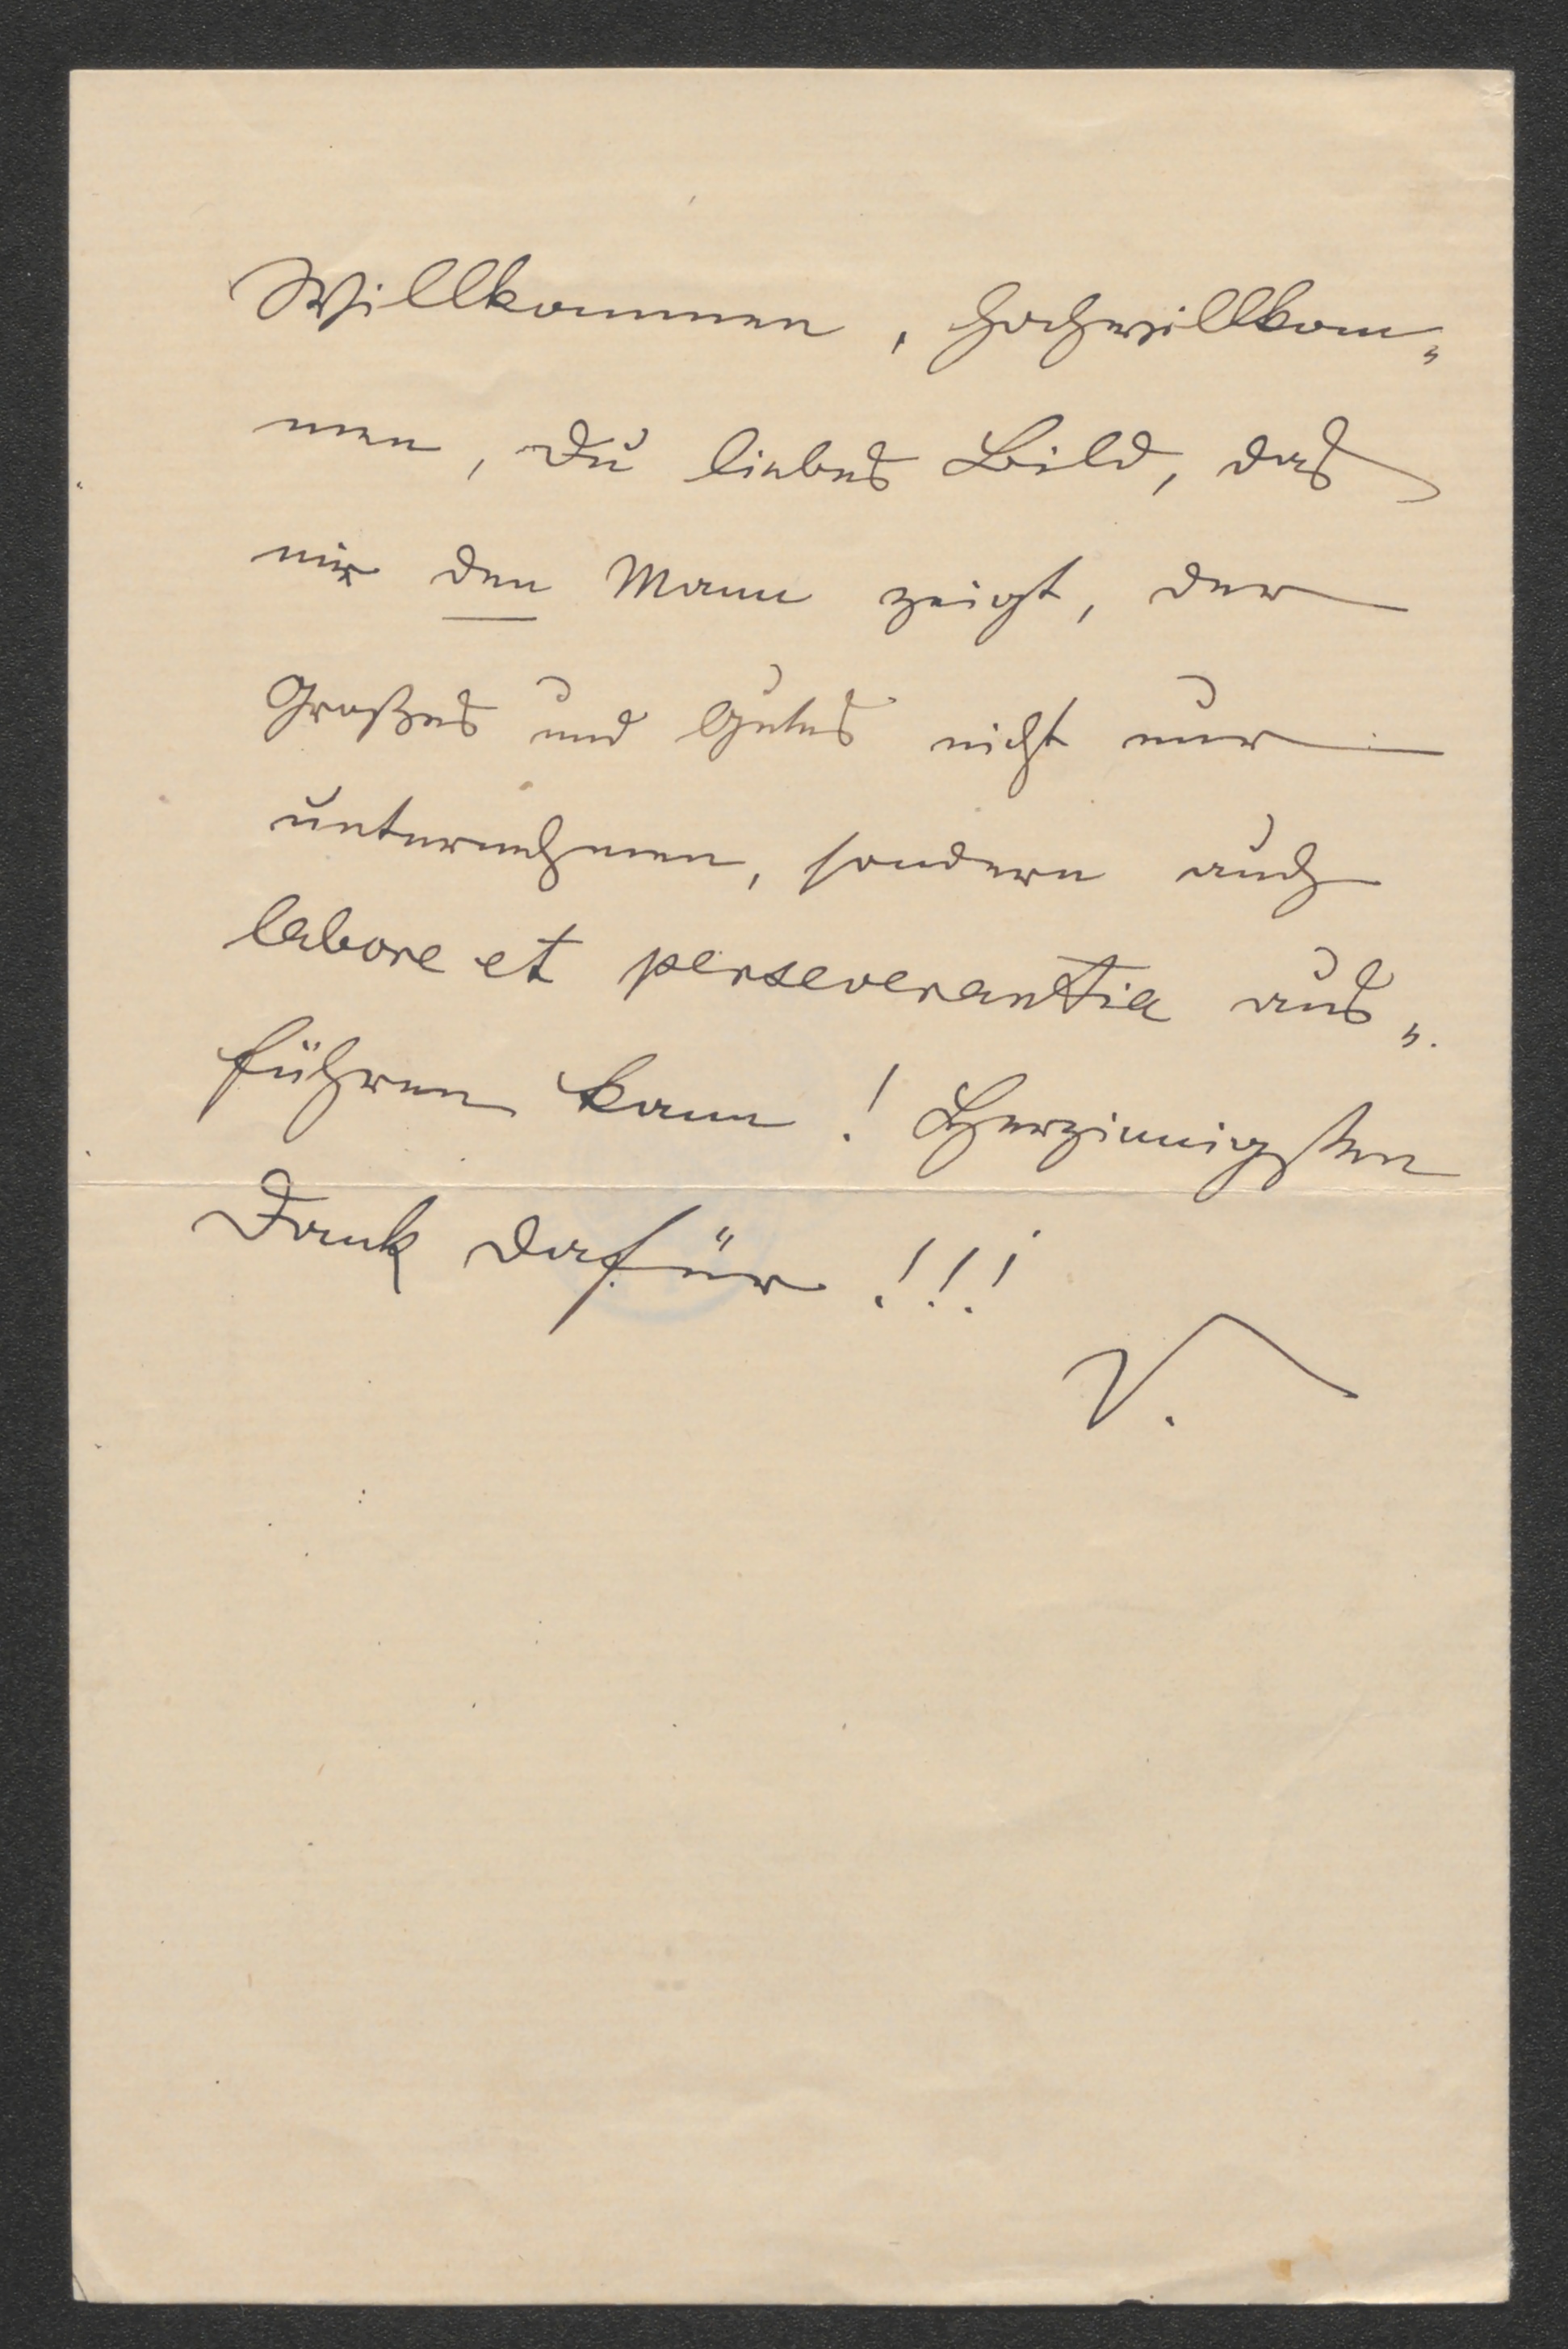 Willkommen, hochwillkom„
men, Du liebes Bild, das
mir den Mann zeigt, der
Großes und Gutes nicht nur
unternehmen, sondern auch
labore et perseverantia aus„
führen kann! Herzinnigsten
Dank dafür!!!
V.